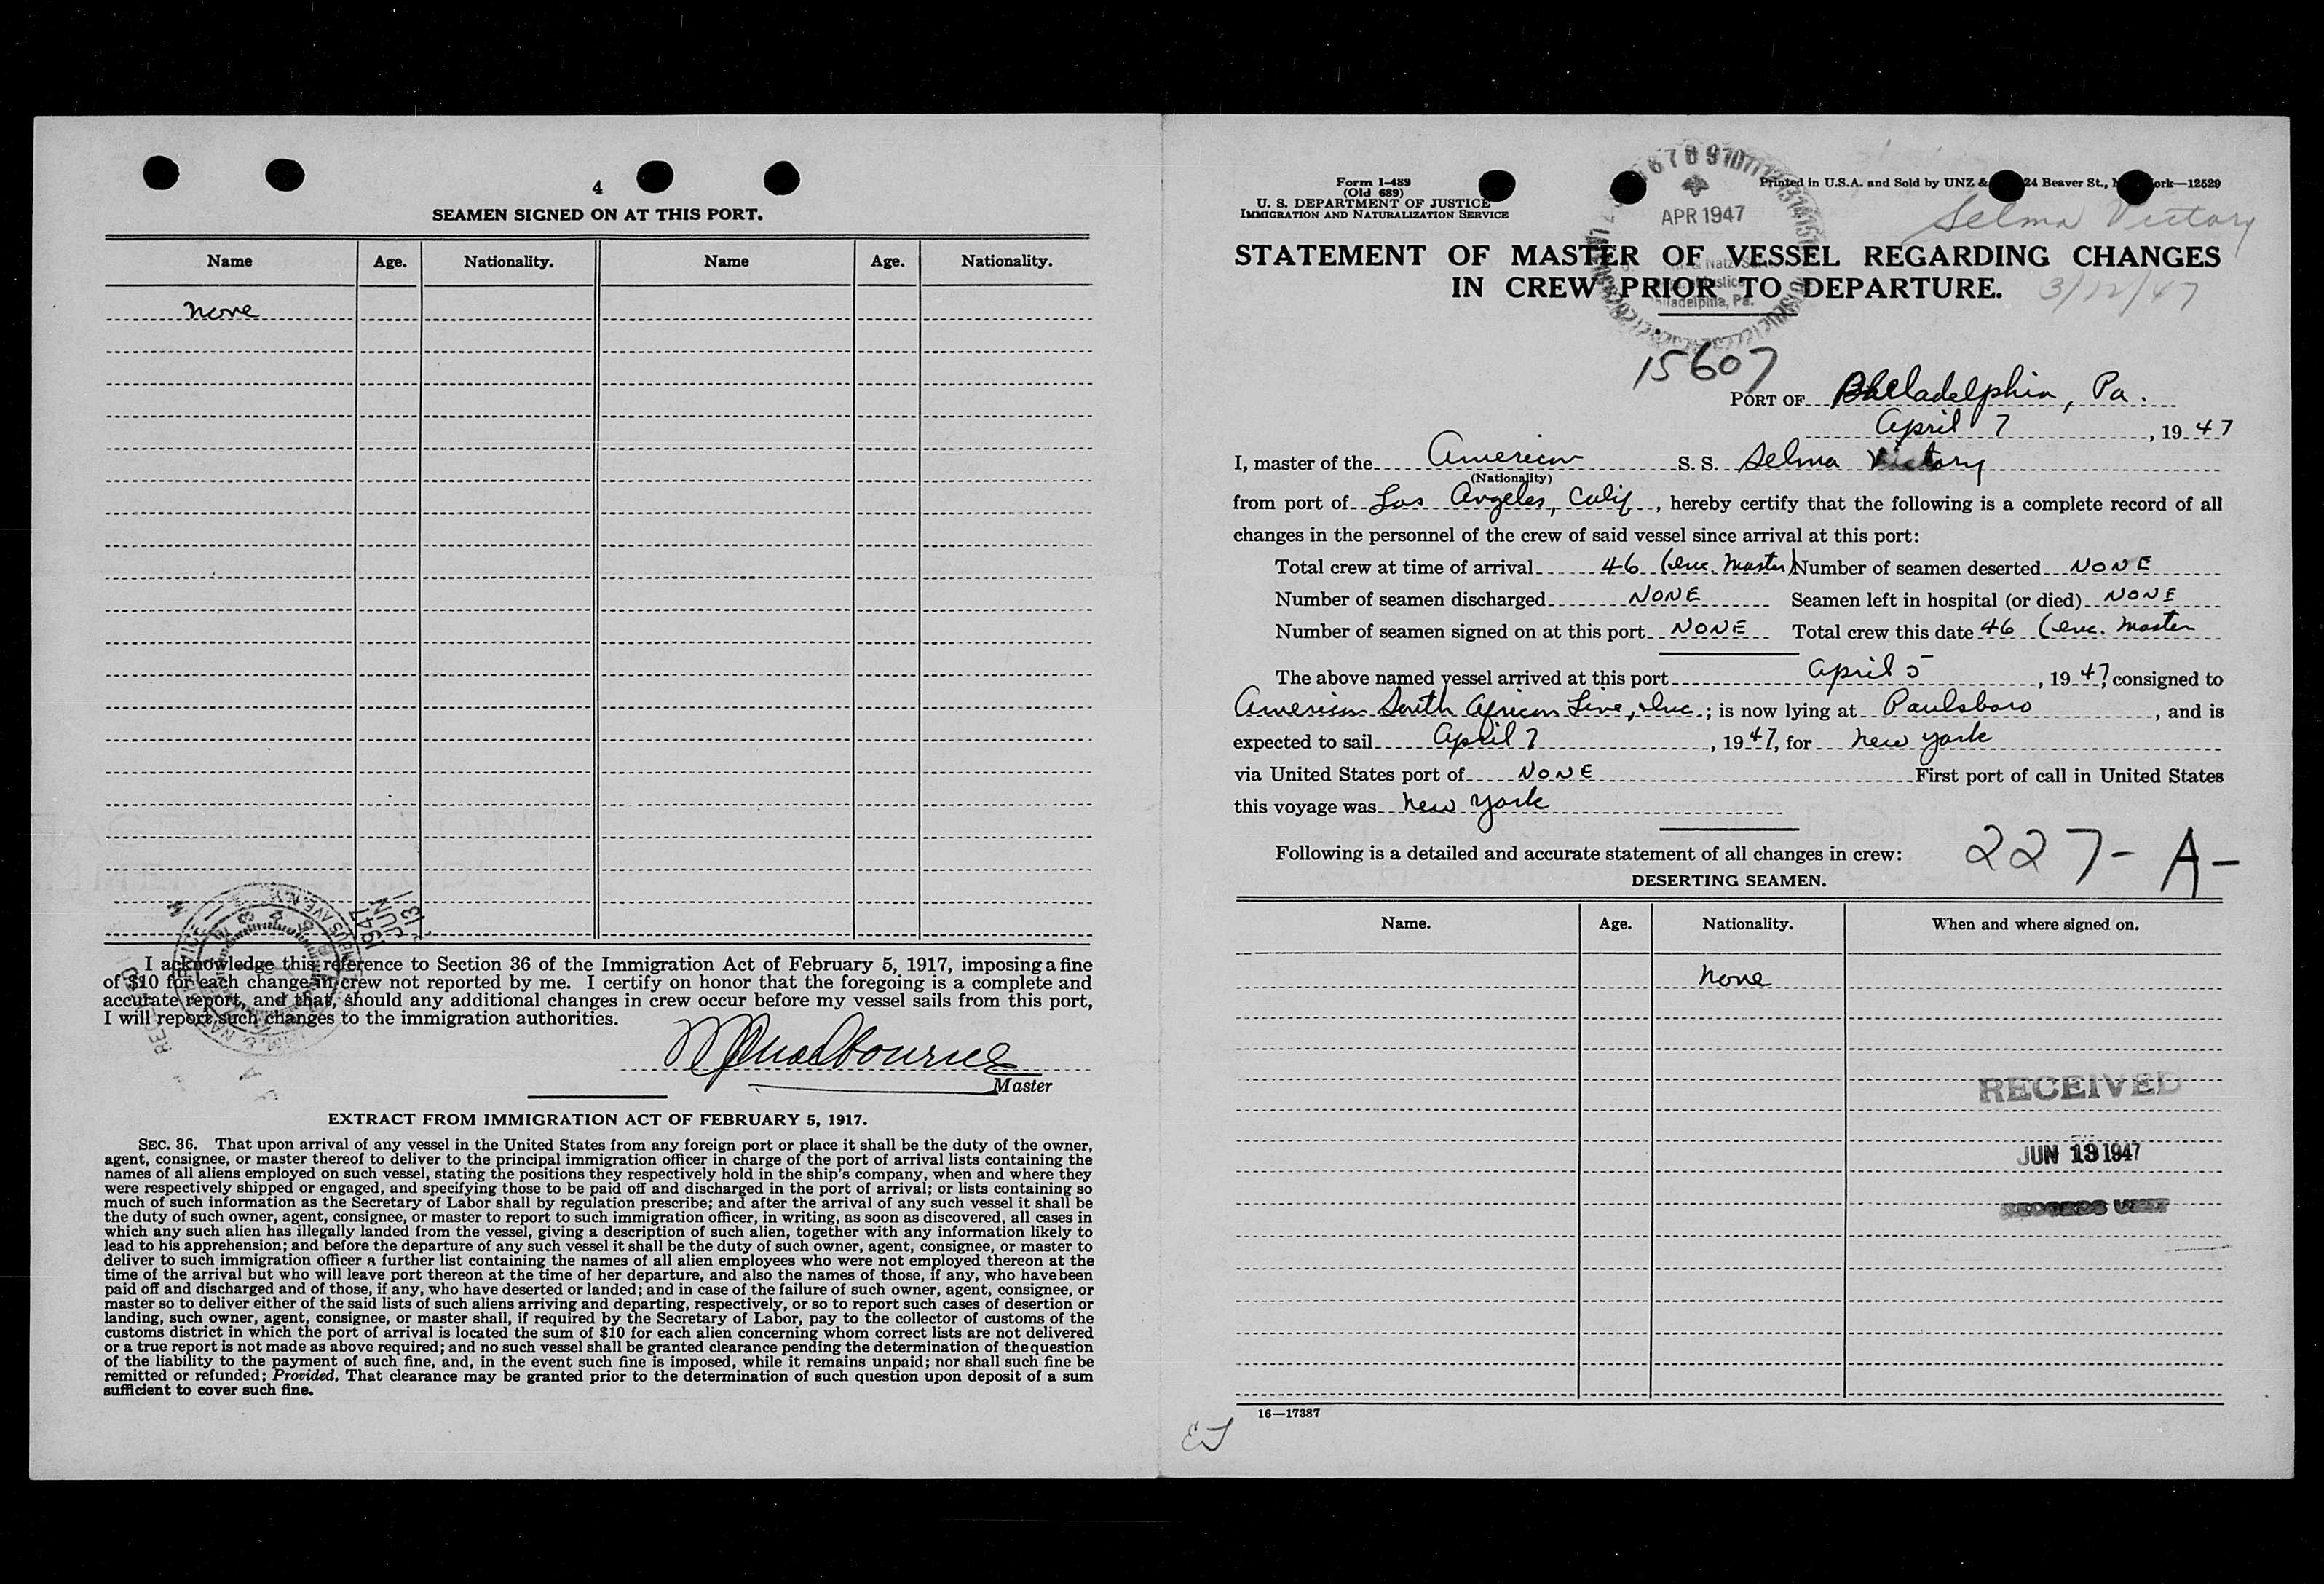 4
SEAMEN SIGNED ON AT THIS PORT.
Name Age. Nationality. Name Age. Nationality.
None
JUN 13 1947
I acknowledge this reference to Section 36 of the Immigration Act of February 5, 1917, imposing a fine
of $10 for each change in crew not reported by me. I certify on honor that the foregoing is a complete and
accurate report, and that, should any additional changes in crew occur before my vessel sails from this port,
I will report such changes to the immigration authorities.
Master
EXTRACT FROM IMMIGRATION ACT OF FEBRUARY 5, 1917.
SEC. 36. That upon arrival of any vessel in the United States from any foreign port or place it shall be the duty of the owner,
agent, consignee, or master thereof to deliver to the principal immigration officer in charge of the port of arrival lists containing the
names of all aliens employed on such vessel, stating the positions they respectively hold in the ship's company, when and where they
were respectively shipped or engaged, and specifying those to be paid off and discharged in the port of arrival; or lists containing so
much of such information as the Secretary of Labor shall by regulation prescribe; and after the arrival of any such vessel it shall be
the duty of such owner, agent, consignee, or master to report to such immigration officer, in writing, as soon as discovered, all cases in
which any such alien has illegally landed from the vessel, giving a description of such alien, together with any information likely to
lead to his apprehension; and before the departure of any such vessel it shall be the duty of such owner, agent, consignee, or master to
deliver to such immigration officer a further list containing the names of all alien employees who were not employed thereon at the
time of the arrival but who will leave port thereon at the time of her departure, and also the names of those, if any, who have been
paid off and discharged and of those, if any, who have deserted or landed; and in case of the failure of such owner, agent, consignee, or
master so to deliver either of the said lists of such aliens arriving and departing, respectively, or so to report such cases of desertion or
landing, such owner, agent, consignee, or master shall, if required by the Secretary of Labor, pay to the collector of customs of the
customs district in which the port of arrival is located the sum of $10 for each alien concerning whom correct lists are not delivered
or a true report is not made as above required; and no such vessel shall be granted clearance pending the determination of the question
of the liability to the payment of such fine, and, in the event such fine is imposed, while it remains unpaid; nor shall such fine be
remitted or refunded; Provided, That clearance may be granted prior to the determination of such question upon deposit of a sum
sufficient to cover such fine.
Form I-489
(Old 689)
U. S. DEPARTMENT OF JUSTICE
IMMIGRATION AND NATURALIZATION SERVICE
Printed in U.S.A. and Sold by UNZ & 24 Beaver St., ork—12529
APR 1947
Selma Victory
STATEMENT OF MASTER OF VESSEL REGARDING CHANGES
IN CREW PRIOR TO DEPARTURE.
3/12/47
15607
PORT OF Philadelphia, Pa.
April 7, 1947
I, master of the American S. S. Selma Victory
(Nationality)
from port of Los Angeles, Calif, hereby certify that the following is a complete record of all
changes in the personnel of the crew of said vessel since arrival at this port:
Total crew at time of arrival 46 (inc. Master) Number of seamen deserted NONE
Number of seamen discharged NONE Seamen left in hospital (or died) NONE
Number of seamen signed on at this port NONE Total crew this date 46 (inc. Master
The above named vessel arrived at this port April 5, 1947, consigned to
American South African Line, Inc.; is now lying at Paulsboro, and is
expected to sail April 7, 1947, for New York
via United States port of NONE First port of call in United States
this voyage was New York
Following is a detailed and accurate statement of all changes in crew:
227-A-
DESERTING SEAMEN.
Name. Age. Nationality. When and where signed on.
None
RECEIVED
JUN 13 1947
RECORDS UNIT
16—17387